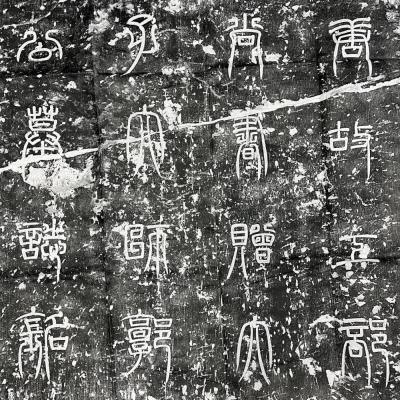 唐故兵部
尚書贈太
子太師郭
公墓誌銘